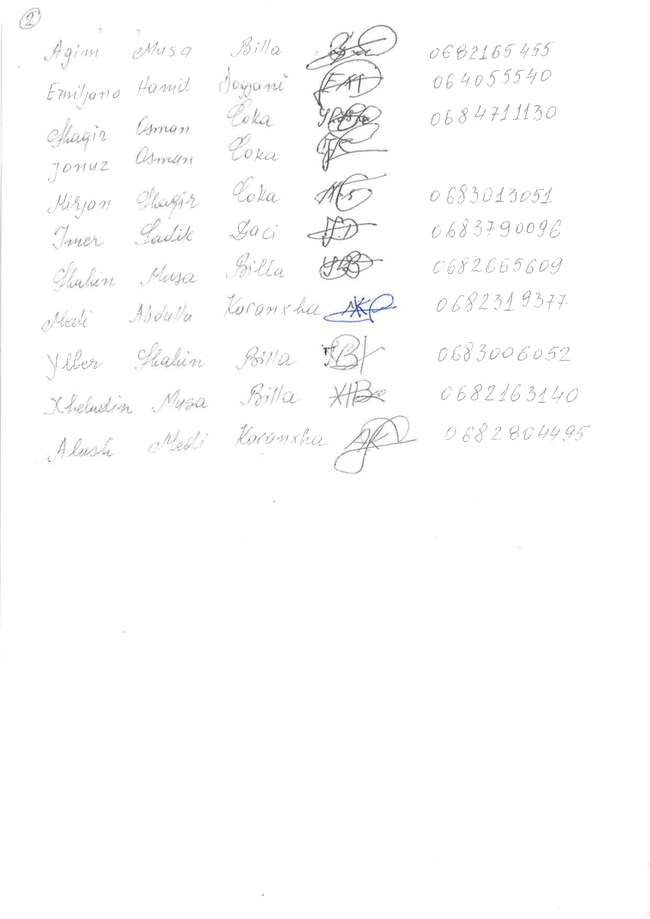 2
Agim Musa Billa 0682165455
Emiljano Hamit 064055540
Shaqir Osman Coka 0684711130
Jonuz Osman Coka
Mirjan Shaqir Coka 0683013051
Imer Sadik Daci 0683790096
Shahin Musa Billa 0682665609
Medi Abdulla Koranxha 0682319377
Ylber Shahin Billa 0683006052
Xheludin Musa Billa 0682163140
Alush Medi Koranxha 0682804495